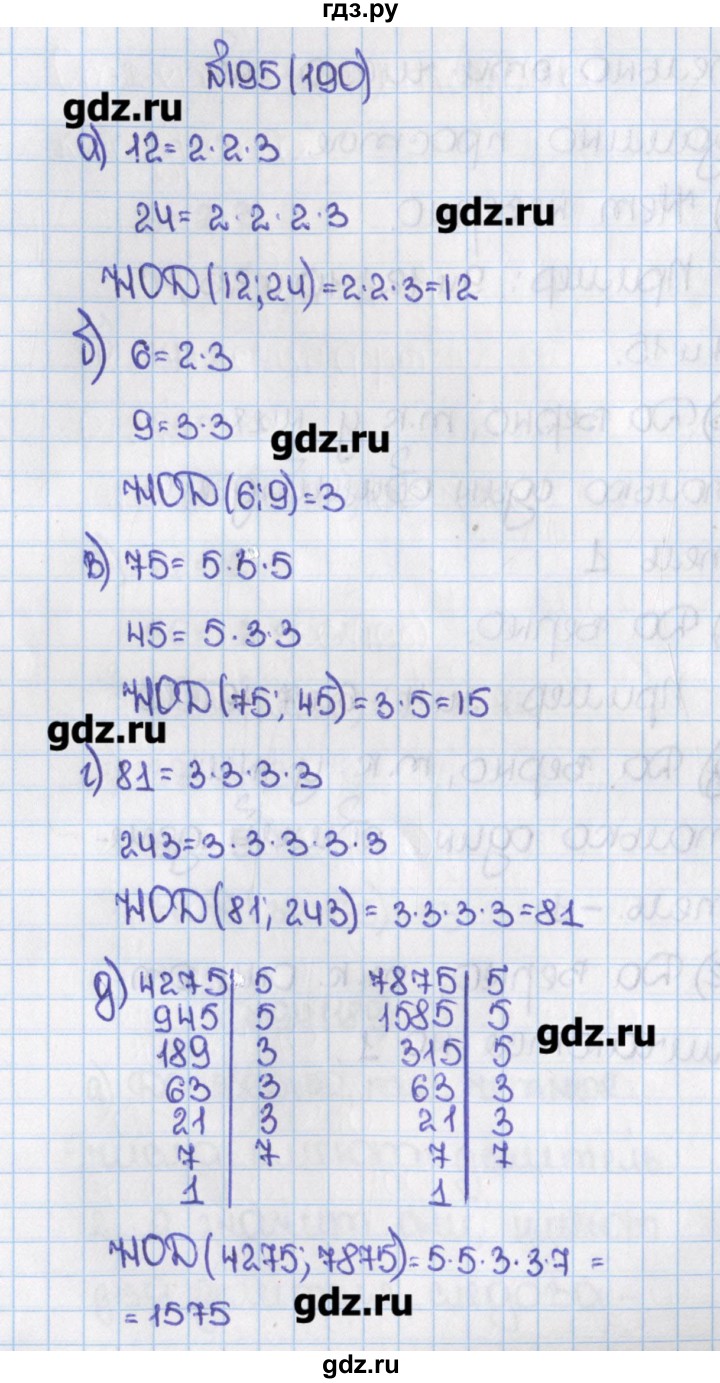 гдз.ру
№195 (190)
gdz.ru
а) 12 = 2·2·3
24 = 2·2·2·3
gdz.ru
НОД (12; 24) = 2·2·3 = 12
б) 6 = 2·3
9 = 3·3
gdz.ru
НОД (6; 9) = 3
в) 75 = 5·5·5
45 = 5·3·3
НОД (75; 45) = 3·5 = 15
gdz.ru
г) 81 = 3·3·3·3
243 = 3·3·3·3·3
НОД (81; 243) = 3·3·3·3 = 81
д) 4275 | 5 7875 | 5
945 | 5 1585 | 5
gdz.ru
189 | 3 315 | 5
63 | 3 63 | 3
21 | 3 21 | 3
7 | 7 7 | 7
1 | 1 |
НОД (4275; 7875) = 5·5·3·3·7 =
= 1575
gdz.ru
gdz.ru